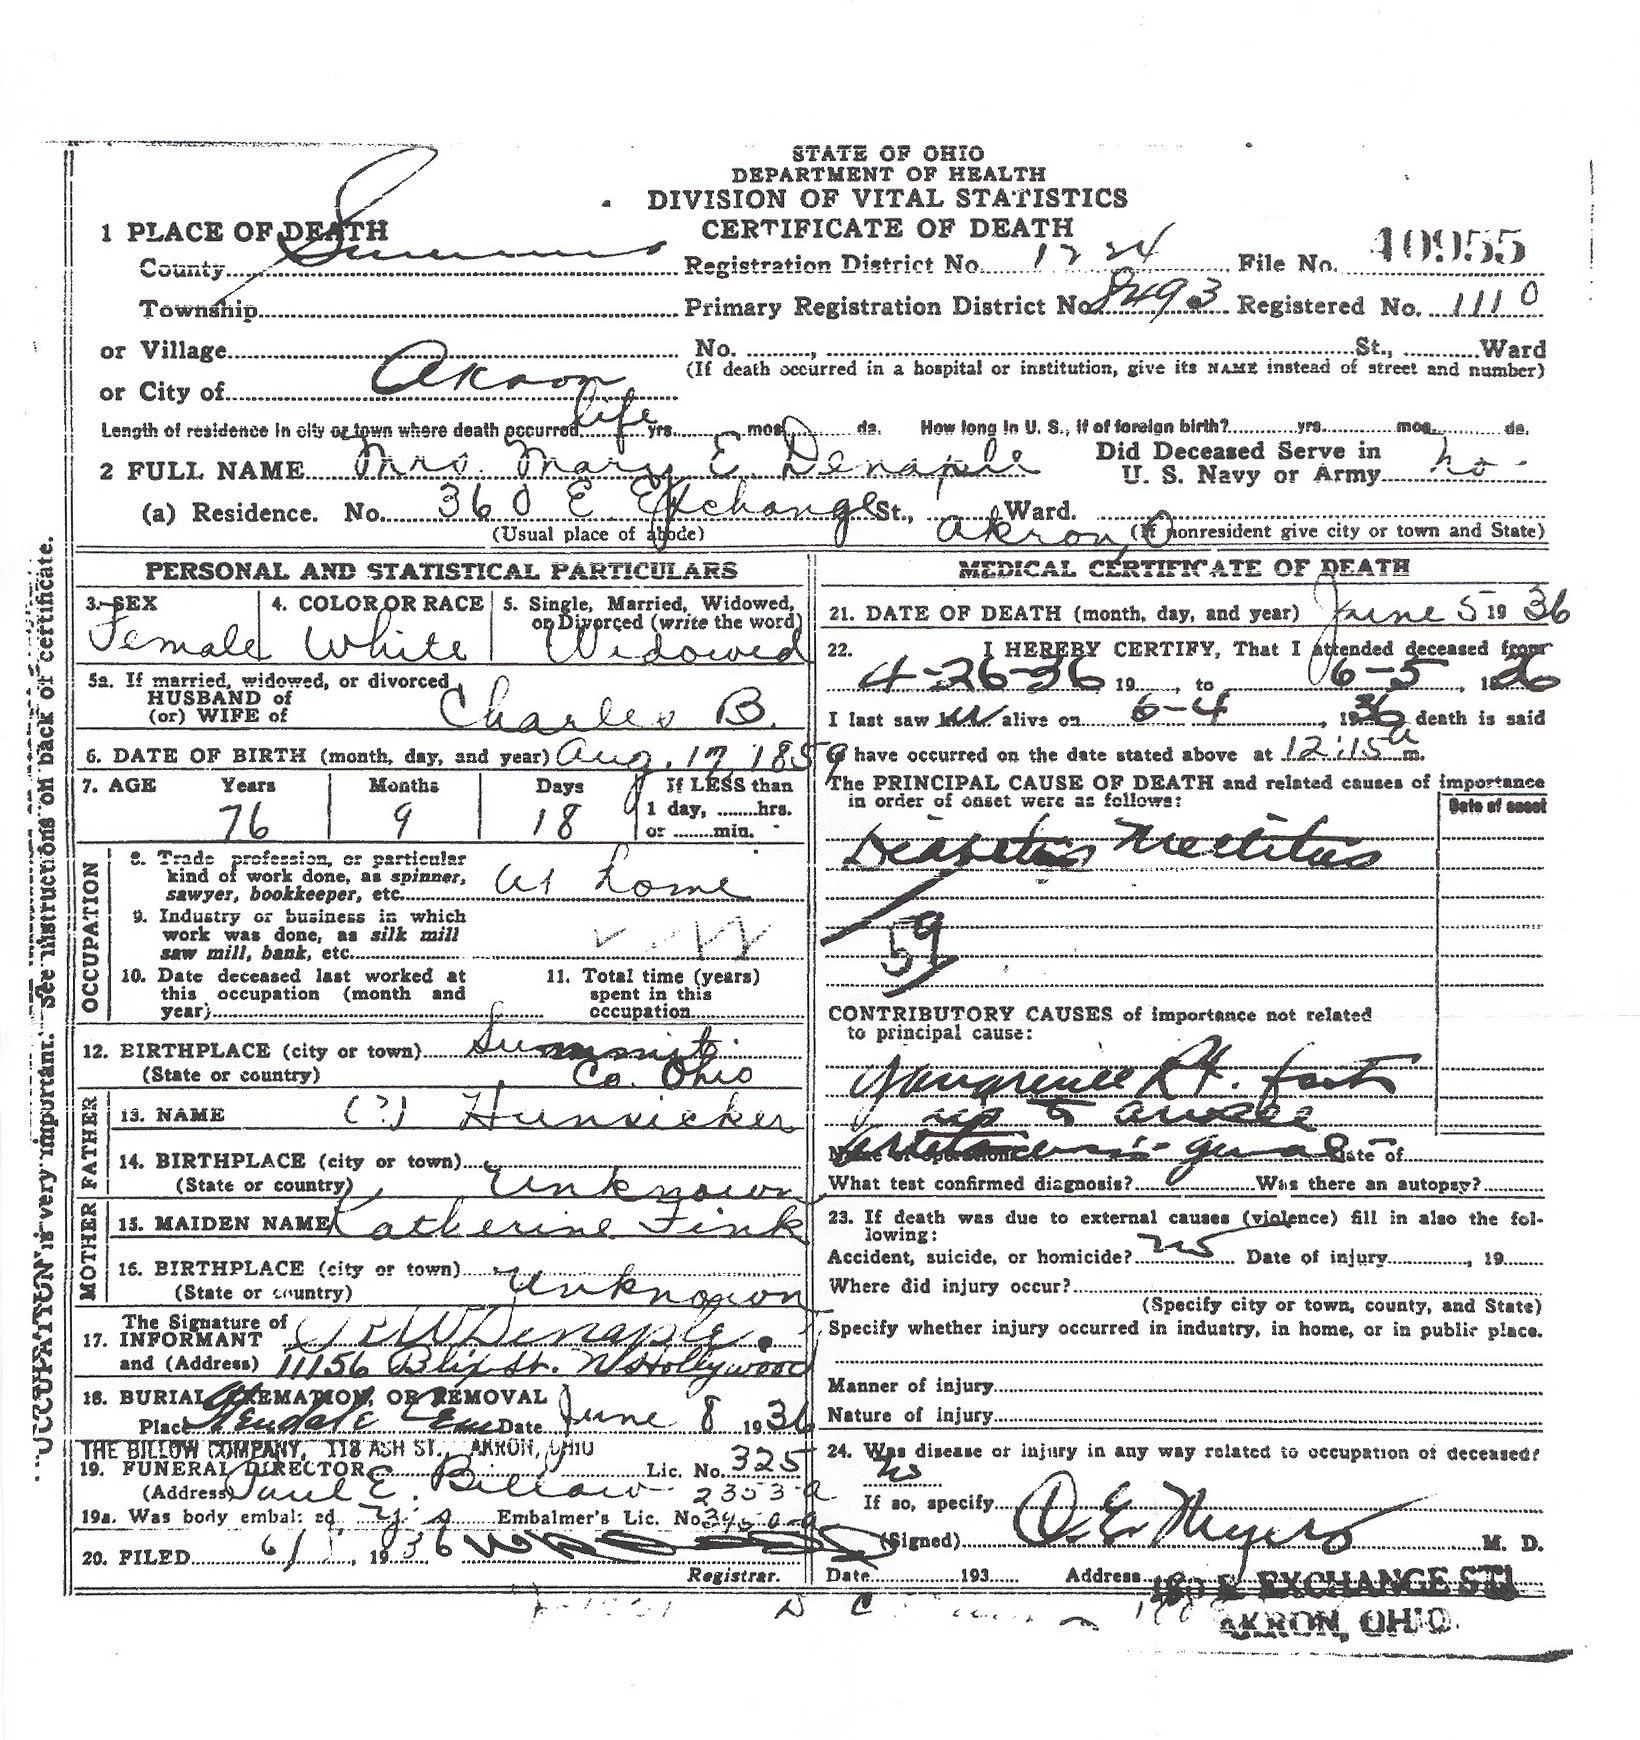 STATE OF OHIO
DEPARTMENT OF HEALTH
DIVISION OF VITAL STATISTICS
CERTIFICATE OF DEATH
1 PLACE OF DEATH
County Summit Registration District No. 1224 File No. 40955
Township Primary Registration District No. 8493 Registered No. 1110
or Village No. , St., Ward
(If death occurred in a hospital or institution, give its NAME instead of street and number)
or City of Akron
Length of residence in city or town where death occurred life yrs. mos. ds. How long in U. S., if of foreign birth? yrs. mos. ds.
2 FULL NAME Mrs. Mary E. Denaple Did Deceased Serve in U. S. Navy or Army no
(a) Residence. No. 360 E Exchange St., Ward. Akron, O
(Usual place of abode) (If nonresident give city or town and State)
PERSONAL AND STATISTICAL PARTICULARS
3. SEX Female
4. COLOR OR RACE White
5. Single, Married, Widowed, or Divorced (write the word) Widowed
5a. If married, widowed, or divorced
HUSBAND of
(or) WIFE of Charles B.
6. DATE OF BIRTH (month, day, and year) Aug. 17 1859
7. AGE Years Months Days If LESS than
76 9 18 1 day, hrs.
or min.
OCCUPATION
8. Trade profession, or particular
kind of work done, as spinner,
sawyer, bookkeeper, etc. at home
9. Industry or business in which
work was done, as silk mill
saw mill, bank, etc.
10. Date deceased last worked at
this occupation (month and
year)
11. Total time (years)
spent in this
occupation
12. BIRTHPLACE (city or town) Summit
(State or country) Co. Ohio
FATHER
13. NAME (?) Hunsicker
14. BIRTHPLACE (city or town)
(State or country) Unknown
MOTHER
15. MAIDEN NAME Katherine Fink
16. BIRTHPLACE (city or town)
(State or country) Unknown
The Signature of
17. INFORMANT R W Denaple
and (Address) 11156 Blix St. N Hollywood
18. BURIAL, CREMATION, OR REMOVAL
Place Glendale Cem Date June 8 1936
THE BILLOW COMPANY, 118 ASH ST., AKRON, OHIO
19. FUNERAL DIRECTOR Lic. No. 325
(Address) Paul E. Billow 2353-a
19a. Was body embalmed yes Embalmer's Lic. No.
20. FILED 6/ , 1936
Registrar.
MEDICAL CERTIFICATE OF DEATH
21. DATE OF DEATH (month, day, and year) June 5 1936
22. I HEREBY CERTIFY, That I attended deceased from
4-26-36 19 , to 6-5 , 1936
I last saw alive on 6-4 , 1936 death is said
to have occurred on the date stated above at 12:15 a m.
The PRINCIPAL CAUSE OF DEATH and related causes of importance
in order of onset were as follows: Date of onset
Diabetes Mellitus
59
CONTRIBUTORY CAUSES of importance not related
to principal cause:
Gangrene Rt. foot
up to ankle
Name of operation Date of
What test confirmed diagnosis? Was there an autopsy?
23. If death was due to external causes (violence) fill in also the fol-
lowing:
Accident, suicide, or homicide? no Date of injury , 19
Where did injury occur?
(Specify city or town, county, and State)
Specify whether injury occurred in industry, in home, or in public place.
Manner of injury
Nature of injury
24. Was disease or injury in any way related to occupation of deceased?
no
If so, specify
(Signed) O. E. Meyers M. D.
Date 193 Address E EXCHANGE ST.
AKRON, OHIO.
OCCUPATION is very important. See instructions on back of certificate.